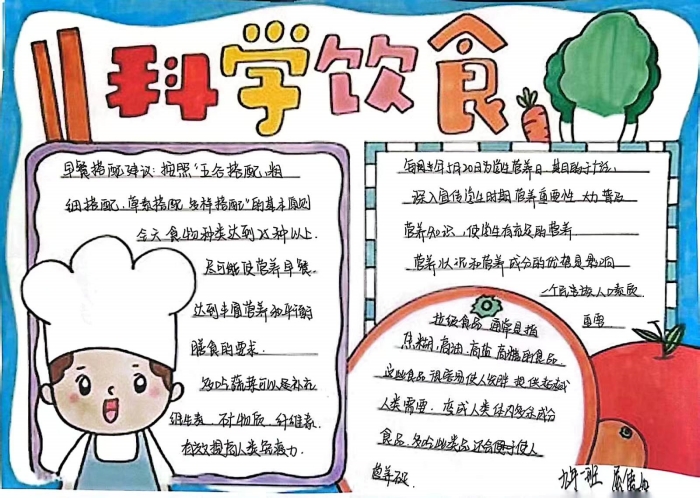 科学饮食
早餐搭配建议:按照"五合搭配,粗
细搭配,荤素搭配,多样搭配"的基本原则
今天食物种类达到25种以上.
尽可能使营养早餐
达到丰富营养和平衡
膳食的要求.
多吃蔬菜可以是补充
维生素、矿物质、纤维素.
有效提高人类免疫力.
每年5月20日为学生营养日,其目的于广泛,
深入宣传学生时期营养重要性,大力普及
营养知识,使学生有充足的营养
营养状况和营养成分的优势是影响
一个民族人口素质
重要
垃圾食品,通常是指
焦糊,高油,高盐,高糖的食品.
这些食品很容易使人发胖,提供超越
人类需要,变成人类体内多余成分
食品,多吃此类品还会便于使人
营养
班